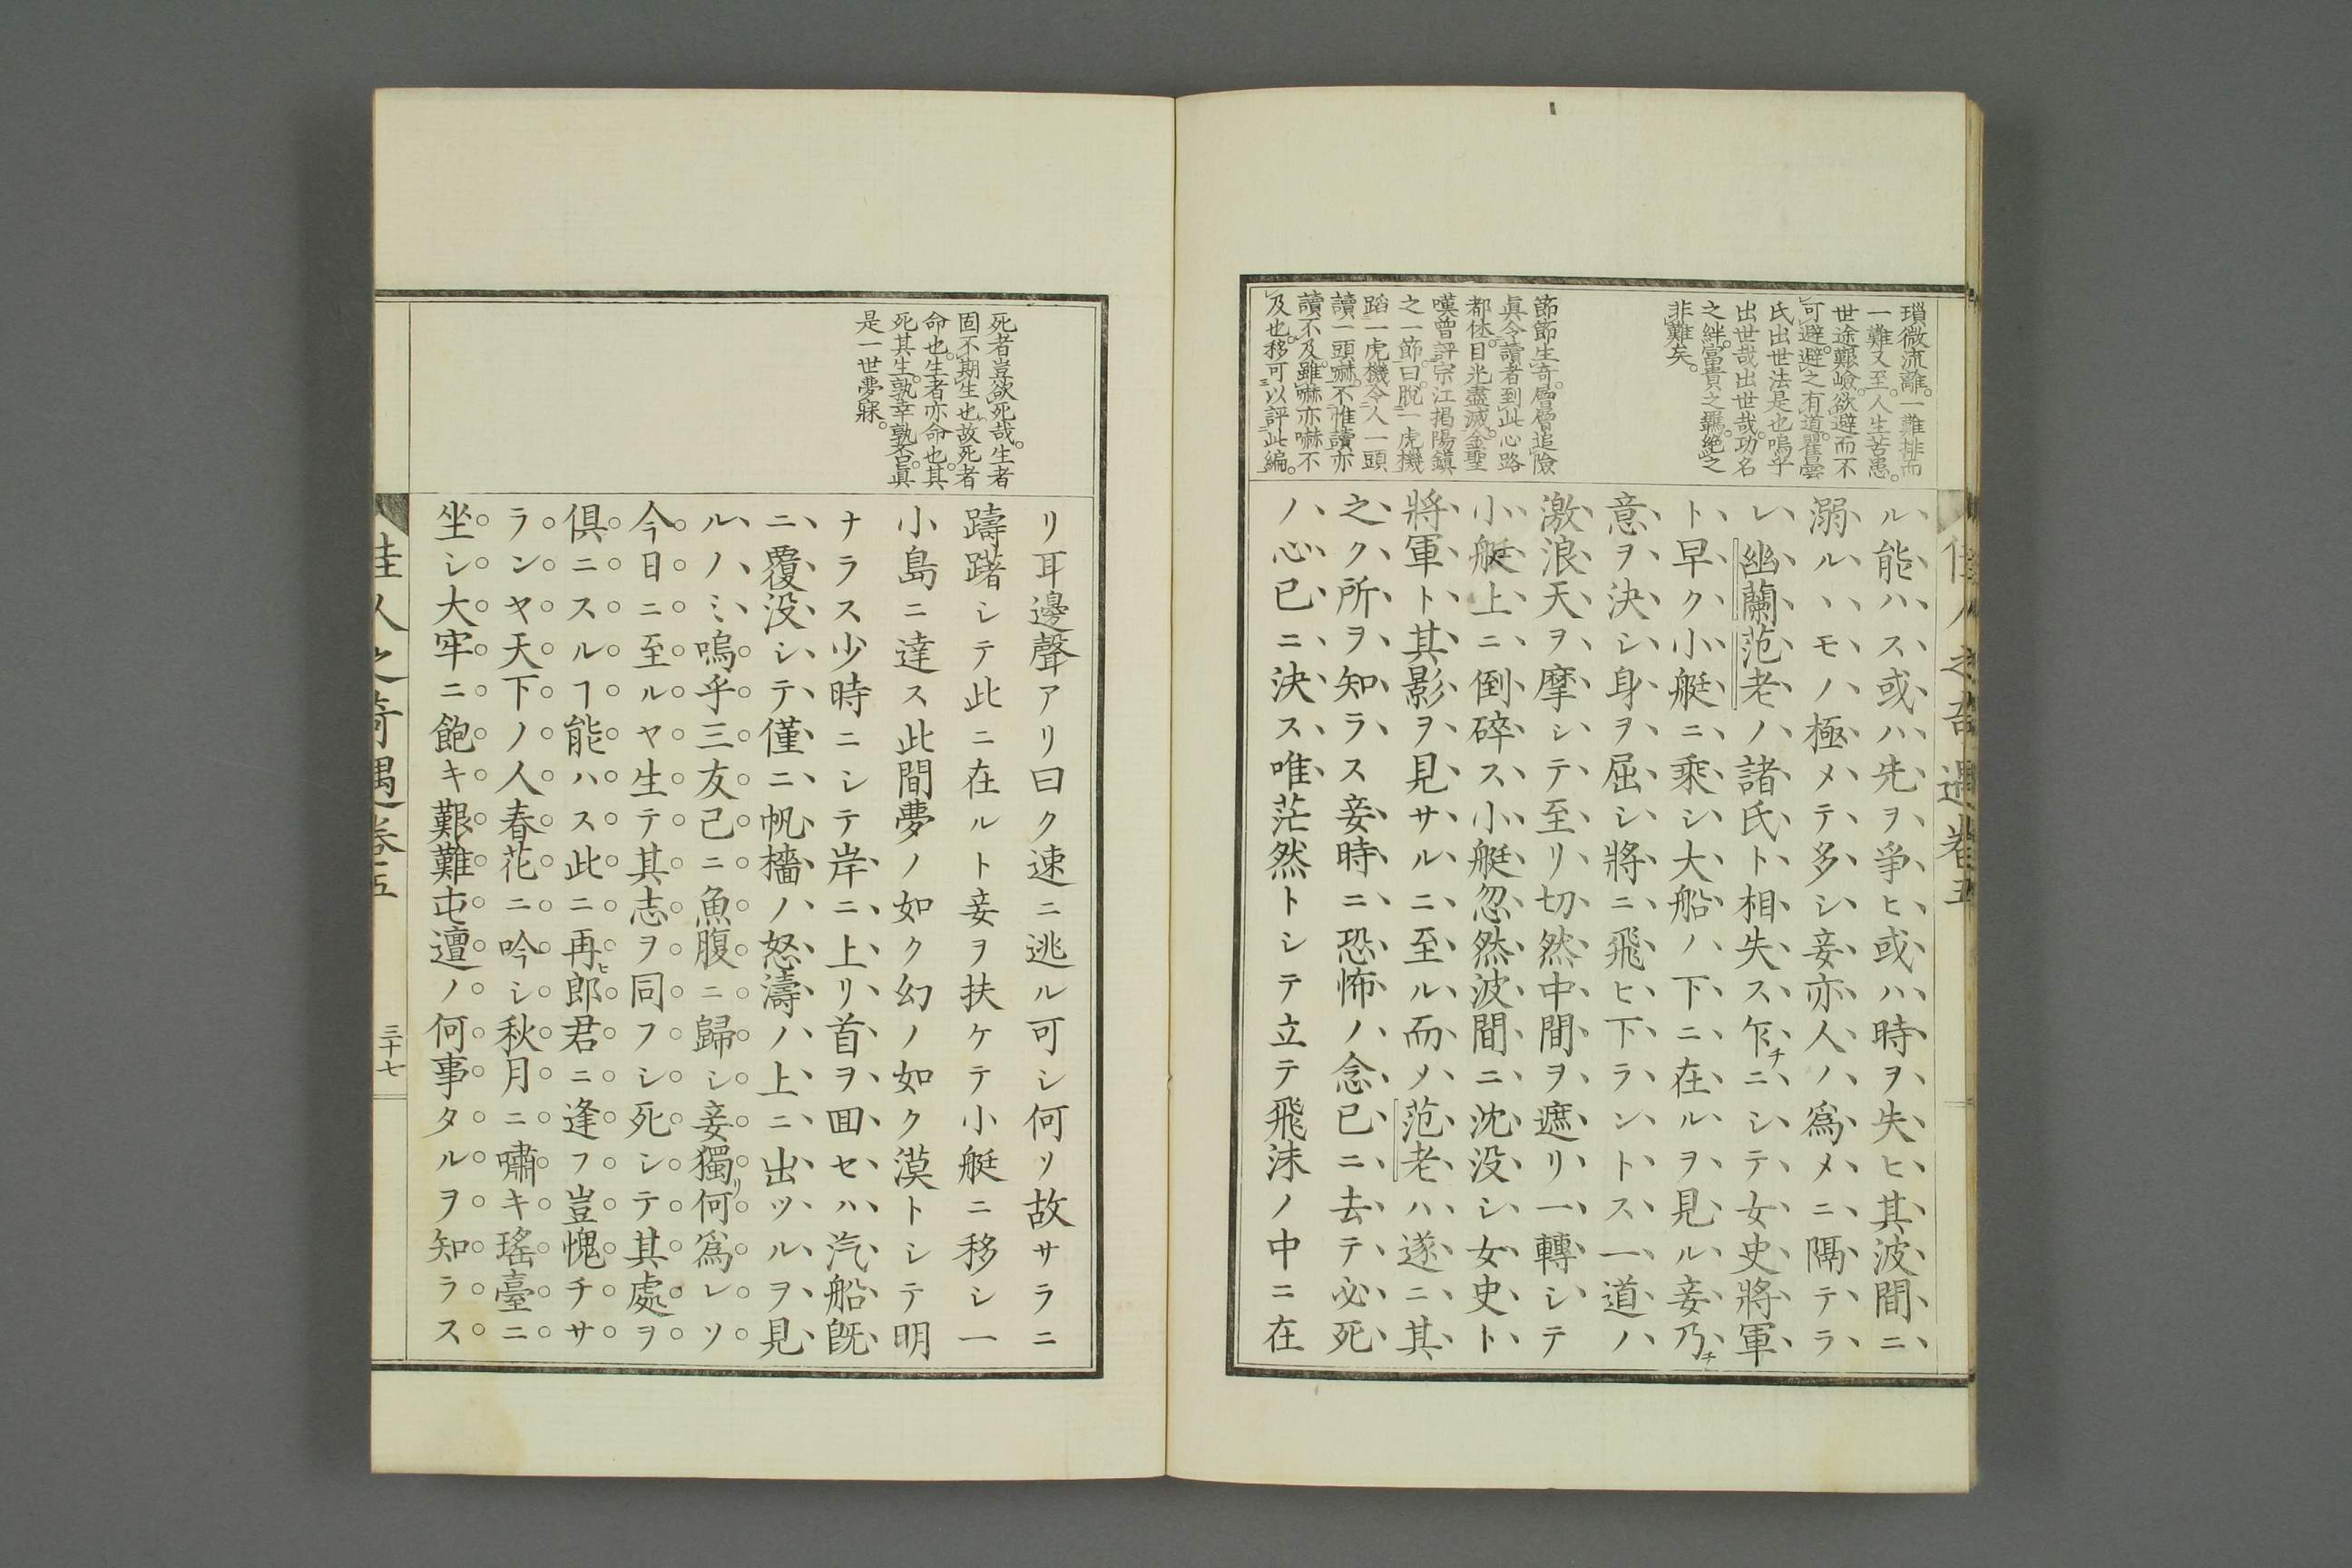 瑣微流離。一難排而
一難又至。人生苦患。
世途艱嶮。欲避而不
可避。避之有道。瞿曇
氏出世法是也。嗚乎
出世哉出世哉。功名
之絆。富貴之羈。絶之
非難矣。
節節生奇。層層追險
眞令讀者到此心路
都休。目光盡滅。金聖
嘆曾評宗江掲陽鎭
之一節。曰。脱一虎機
蹈一虎機。令人一頭
讀一頭嚇。不惟讀亦
讀不及。雖嚇亦嚇不
及也。移可以評此編。
ル能ハス或ハ先ヲ爭ヒ或ハ時ヲ失ヒ其波間ニ
溺ルヽモノ極メテ多シ妾亦人ノ爲メニ隔テラ
レ幽蘭范老ノ諸氏ト相失ス乍チニシテ女史將軍
ト早ク小艇ニ乘シ大船ノ下ニ在ルヲ見ル妾乃チ
意ヲ決シ身ヲ屈シ將ニ飛ヒ下ラントス一道ノ
激浪天ヲ摩シテ至リ切然中間ヲ遮リ一轉シテ
小艇上ニ倒碎ス小艇忽然波間ニ沈没シ女史ト
將軍ト其影ヲ見サルニ至ル而ノ范老ハ遂ニ其
之ク所ヲ知ラス妾時ニ恐怖ノ念已ニ去テ必死
ノ心已ニ決ス唯茫然トシテ立テ飛沫ノ中ニ在
佳人之奇遇卷五
死者豈欲死哉。生者
固不期生也。故死者
命也。生者亦命也。其
死其生。孰幸孰否。眞
是一世夢寐。
リ耳邊聲アリ曰ク速ニ逃ル可シ何ソ故サラニ
躊躇シテ此ニ在ルト妾ヲ扶ケテ小艇ニ移シ一
小島ニ達ス此間夢ノ如ク幻ノ如ク漠トシテ明
ナラス少時ニシテ岸ニ上リ首ヲ回セハ汽船既
ニ覆没シテ僅ニ帆檣ノ怒濤ノ上ニ出ツルヲ見
ルノミ嗚乎三友己ニ魚腹ニ歸シ妾獨リ何爲レソ
今日ニ至ルヤ生テ其志ヲ同フシ死シテ其處ヲ
俱ニスルヿ能ハス此ニ再ヒ郎君ニ逢フ豈愧チサ
ランヤ天下ノ人春花ニ吟シ秋月ニ嘯キ瑤臺ニ
坐シ大牢ニ飽キ艱難屯邅ノ何事タルヲ知ラス
佳人之奇遇卷五
三十七